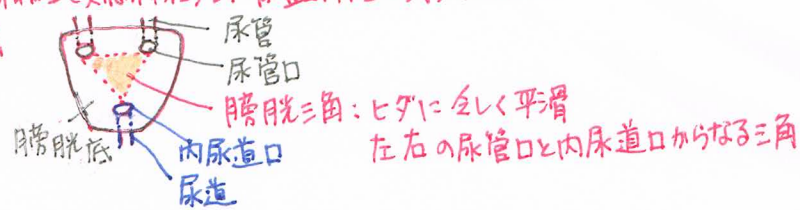 尿管
尿管口
膀胱三角:ヒダに乏しく平滑
左右の尿管口と内尿道口からなる三角
膀胱底
内尿道口
尿道